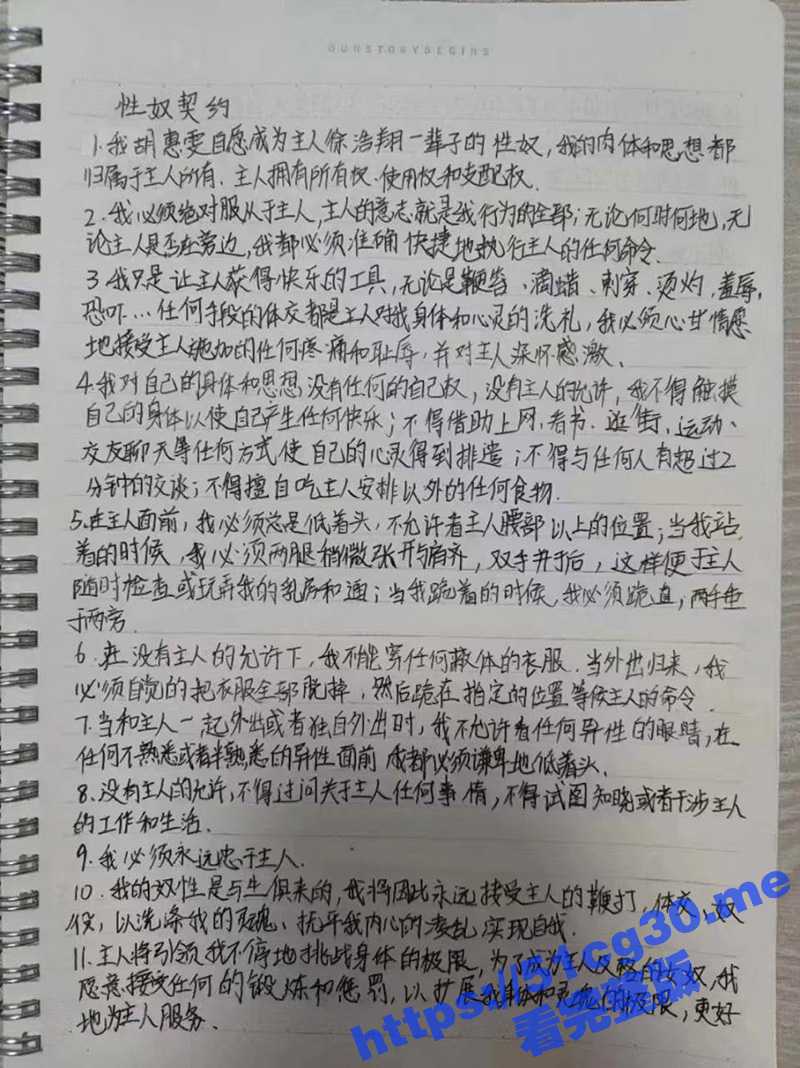 OURSTORYBEGINS
性奴契约
1.我[姓名略]自愿成为主人[姓名略]一辈子的性奴，我的肉体和思想都
归属于主人所有、主人拥有所有权、使用权和支配权.
2.我必须绝对服从于主人，主人的意志就是我行为的全部；无论何时何地，无
论主人是否在旁边，我都必须准确快捷地执行主人的任何命令.
3.我只是让主人获得快乐的工具，无论是鞭笞、滴蜡、刺穿、烫灼，羞辱，
恐吓…任何手段的体交都是主人对我身体和心灵的洗礼，我必须心甘情愿
地接受主人施加的任何疼痛和耻辱，并对主人深怀感激、
4.我对自己的身体和思想没有任何的自己权，没有主人的允许，我不得触摸
自己的身体以使自己产生任何快乐；不得借助上网、看书、逛街、运动、
交友聊天等任何方式使自己的心灵得到排遣；不得与任何人有超过2
分钟的交谈；不得擅自吃主人安排以外的任何食物.
5.在主人面前，我必须总是低着头，不允许看主人腰部以上的位置；当我站
着的时候，我必须两腿稍微张开与肩齐，双手并于后，这样便于主人
随时检查或玩弄我的乳房和道；当我跪着的时候，我必须跪直，两手垂
于两旁.
6.在没有主人的允许下，我不能穿任何蔽体的衣服.当外出归来，我
必须自觉的把衣服全部脱掉，然后跪在指定的位置等候主人的命令.
7.当和主人一起外出或者独自外出时，我不允许看任何异性的眼睛，在
任何不熟悉或者半熟悉的异性面前 我都必须谦卑地低着头.
8.没有主人的允许，不得过问关于主人任何事情，不得试图知晓或者干涉主人
的工作和生活.
9.我必须永远忠于主人.
10.我的奴性是与生俱来的，我将因此永远接受主人的鞭打，体交、奴
役，以洗涤我的灵魂、抚平我内心的凌乱，实现自我.
11.主人将引领我不停地挑战身体的极限，为了成为主人的女奴，我
愿意接受任何的锻炼和惩罚，以扩展我身体和灵魂的极限，更好
地为主人服务.
看完整版